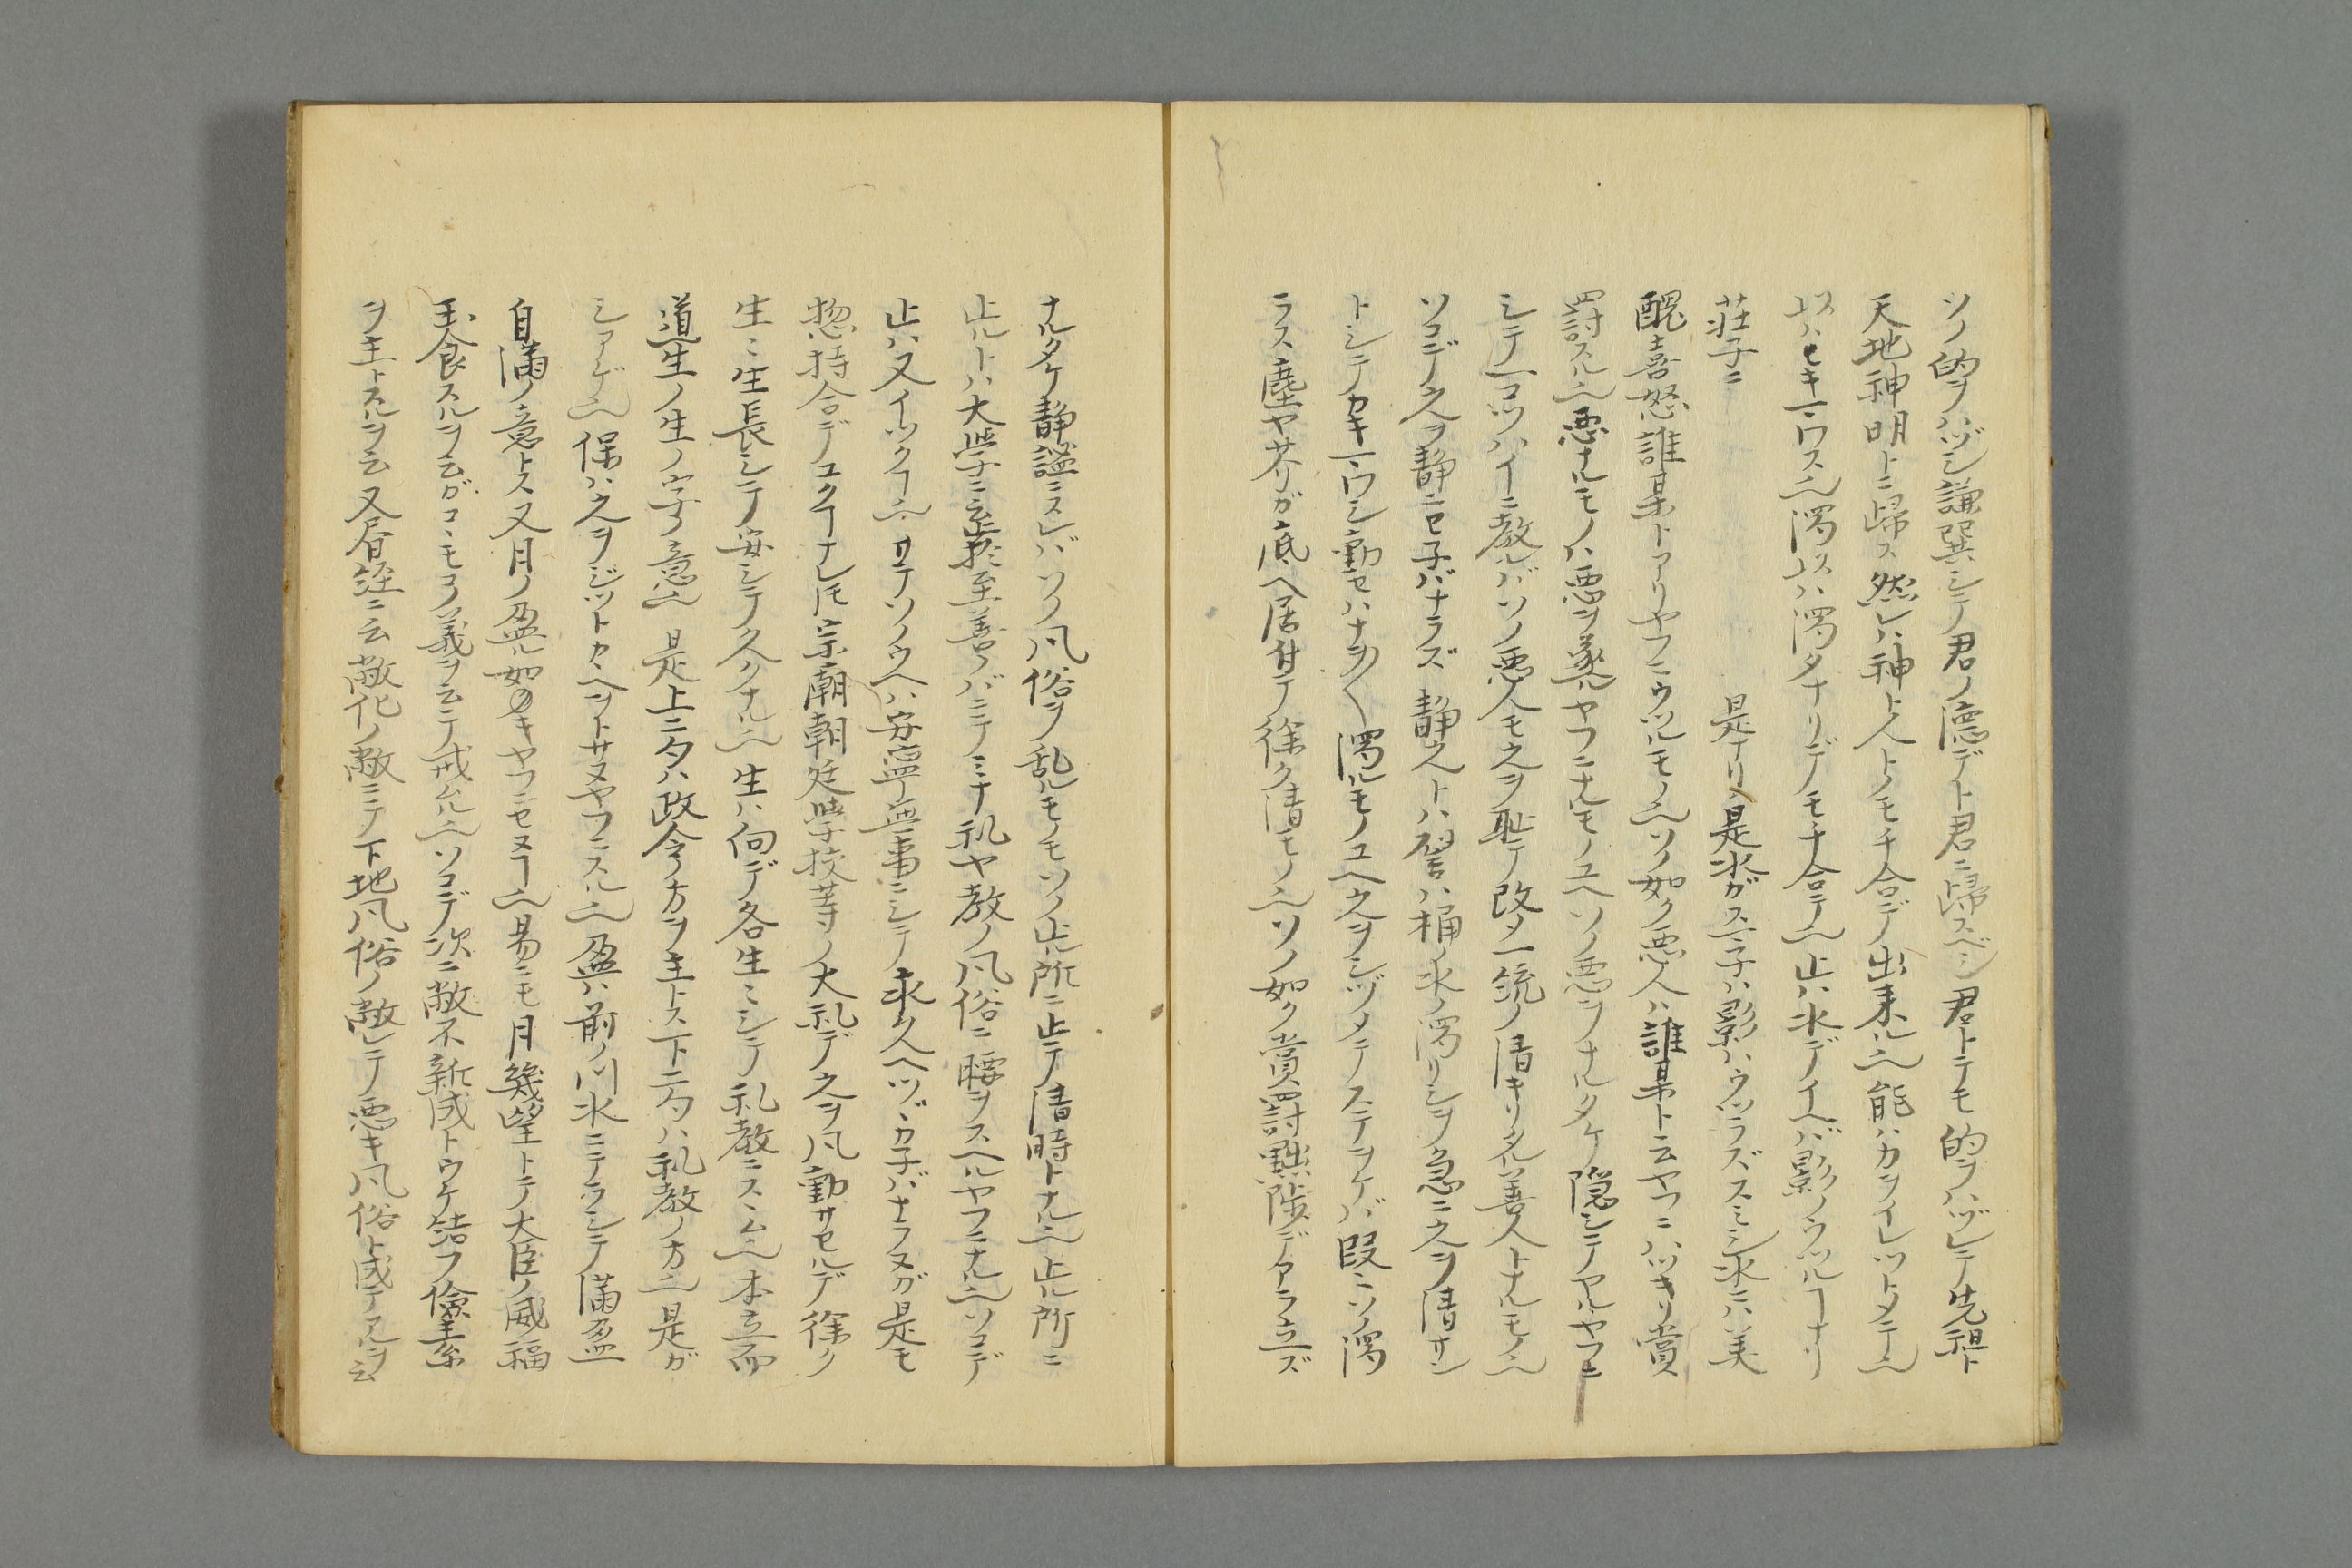 ソノ的ヲハヅシ謙巽シテ君ノ隠デト君ニ歸スベシ君トテモ的ヲハヅレテ先祖ト
天地神明トニ歸ス然レハ神ト人トノモチ合デノ出来ル也能ハカヲイレツトメテ也
以ハモキ一ワス也濁以ハ濁タナリデノモチ合テ也止ハ水デイヘバ影ノウツルヿナリ
荘子ニ 是ナリ是水ガス子ハ影ハウツラズスミシ水ニハ美
醜喜怒誰某トアリヤフニウツルモノ也ソノ如ク悪人ハ誰某ト云ヤフニハツキリ賞
罰スル也悪ナルモノハ悪ヲ遂ルヤフニナルモノユヘソノ悪ヲナルタケ隠シテヤルヤフニ
シテノコツハイニ教ルバソノ悪人モ之ヲ恥テ改メ一統ノ清キリタル善人トナルモノ也
ソコデ之ヲ静ニセ子バナラズ静之トハ譬ハ桶ノ水ノ濁リシヲ急ニ之ヲ清サン
トシテカキ一ワシ動セハナヲ〱濁ルモノユヘ之ヲシヅメテステヲケバ段ニソノ濁
ラス塵ヤ芥ガ底ヘ居付テ徐ク清モノ也ソノ如ク賞罰黜陟デアラ立ズ
ナルタケ静謐ニスレバソノ凡俗ヲ乱ルモノモソノ止ル所ニ止テ清時トナル也止ル所ニ
止ルトハ大学ニ云止於至善ノバニテミナ礼ヤ教ノ凡俗ニ腰ヲスヘルヤフニナル也ソコデ
止ハ又イツクヿ也サテソノウヘハ安寧無事ニシテ永久ヘツヾカ子バナラヌガ是モ
惣持合デユクヿナレ𪜈宗廟朝廷学校等ノ大礼デ之ヲ凡動サセルデ徐ク
生ニ生長シテ安シテ久クナル也生ハ何デ各生ニシテ礼教ニスヽム也本立而
道生ノ生ノ字ノ意也是上ニ夕ハ政令ノ方ヲ主トス下ニ夕ハ礼教ノ方也是ガ
シアゲ也保ハ之ヲジツトカヘヲトサヌヤフニスル也盈ハ前ノ川水ニテラシテ満盈
自満ノ意トス又月ノ盈ル如キヤフニセヌヿ也易ニモ月幾望トテ大臣ノ威福
玉食スルヲ云ガコヽモコノ義ヲ云テ戒ムル也ソコデ次ニ敝不新成トウケ結フ儉素
ヲ主トスルヲ云又眉詮ニ云敝化ノ敝ニテ下地凡俗ノ敝レテ悪キ凡俗ト成テアルヲ云